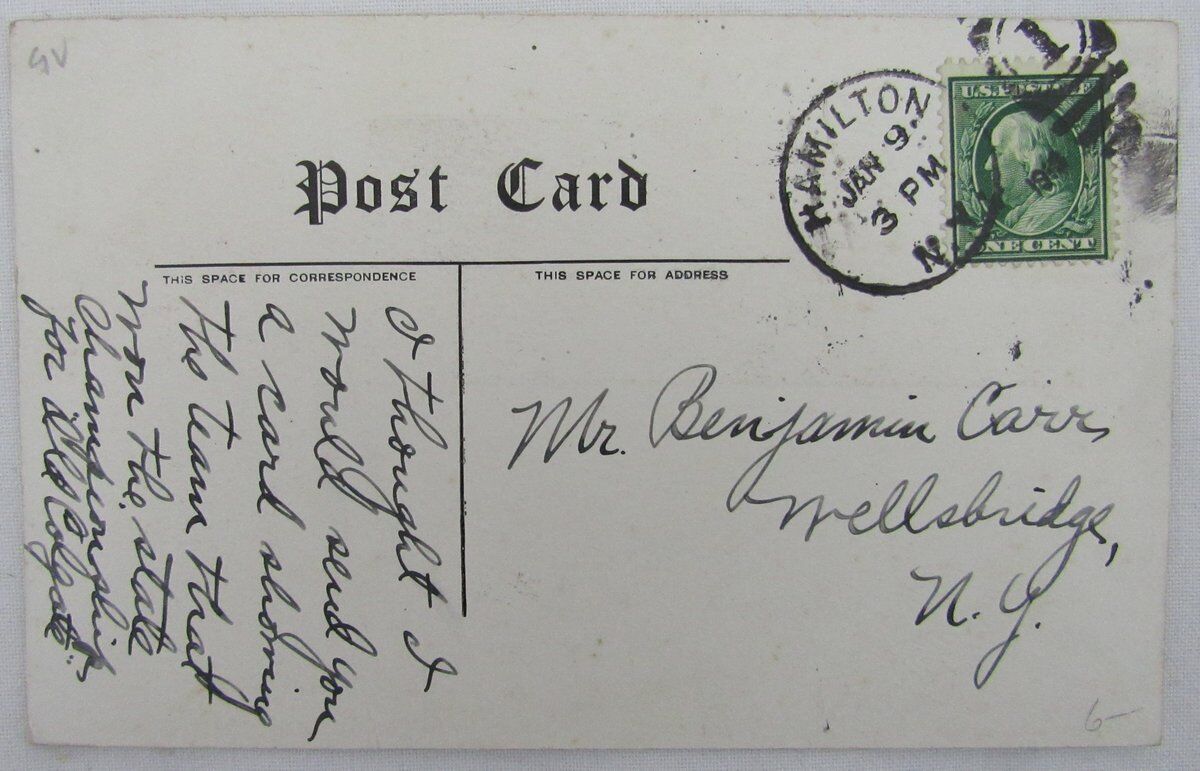 GV
Post Card
THIS SPACE FOR CORRESPONDENCE
THIS SPACE FOR ADDRESS
HAMILTON
JAN 9
3 PM
N.Y.
1
U.S. POSTAGE
ONE CENT
I thought I
would send you
a card showing
the team that
won the state
Championship
for "Old Colgate".
Mr. Benjamin Carr,
Wellsbridge,
N.Y.
6-